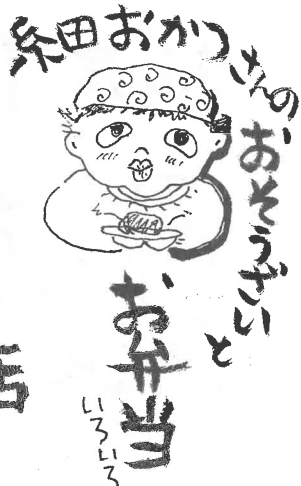 糸田おかつさんの
おそうざいと
お弁当
いろいろ